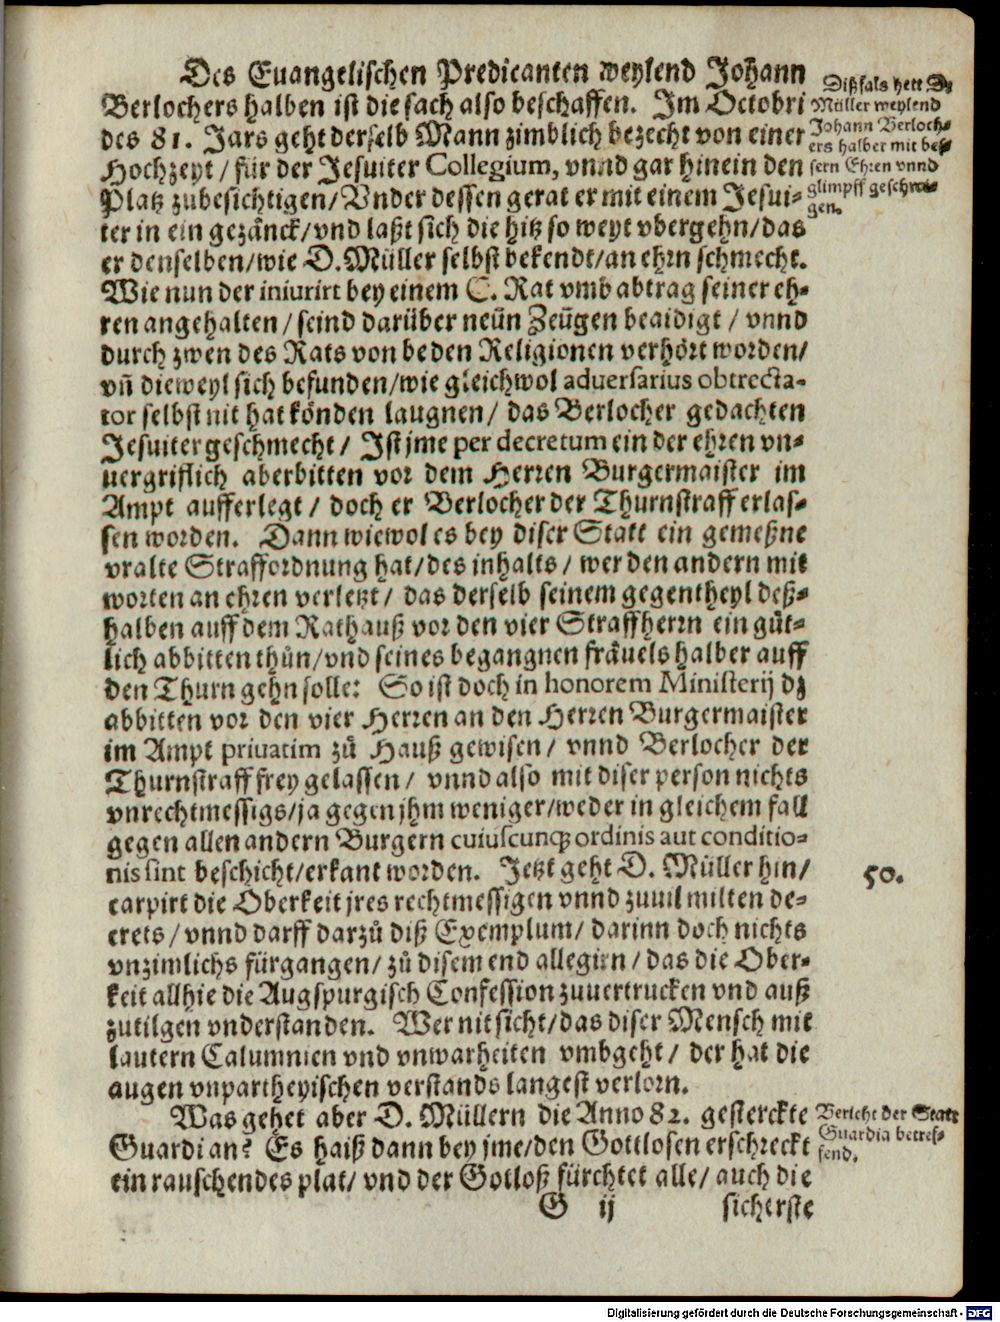 Des Euangelischen Predicanten weylend Johann
Berlochers halben ist die sach also beschaffen. Im Octobri
des 81. Jars geht derselb Mann zimblich bezecht von einer
Hochzeyt / für der Jesuiter Collegium, vnnd gar hinein den
Platz zubesichtigen/ Vnder dessen gerat er mit einem Jesui-
ter in ein gezänck/ vnd laßt sich die hitz so weyt vbergehn/ das
er denselben/ wie D. Müller selbst bekendt/ an ehrn schmecht.
Wie nun der iniurirt bey einem E. Rat vmb abtrag seiner eh-
ren angehalten / seind darüber neün Zeügen beaidigt / vnnd
durch zwen des Rats von beden Religionen verhört worden/
vn̄ dieweyl sich befunden/ wie gleichwol aduersarius obtrecta-
tor selbst nit hat könden laugnen/ das Berlocher gedachten
Jesuiter geschmecht/ Ist jme per decretum ein der ehren vn-
uergriflich aberbitten vor dem Herren Burgermaister im
Ampt aufferlegt / doch er Berlocher der Thurnstraff erlas-
sen worden. Dann wiewol es bey diser Statt ein gemeßne
vralte Straffordnung hat/ des inhalts / wer den andern mit
worten an ehren verletzt/ das derselb seinem gegentheyl deß-
halben auff dem Rathauß vor den vier Straffherrn ein güt-
lich abbitten thůn/ vnd seines begangnen fräuels halber auff
den Thurn gehn solle: So ist doch in honorem Ministerij dz
abbitten vor den vier Herren an den Herren Burgermaister
im Ampt priuatim zů Hauß gewisen/ vnnd Berlocher der
Thurnstraff frey gelassen/ vnnd also mit diser person nichts
vnrechtmessigs/ ja gegen jhm weniger/ weder in gleichem fall
gegen allen andern Burgern cuiuscunq; ordinis aut conditio-
nis sint beschicht/ erkant worden. Jetzt geht D. Müller hin/
carpirt die Oberkeit jres rechtmessigen vnnd zuuil milten de-
crets/ vnnd darff darzů diß Exemplum/ darinn doch nichts
vnzimlichs fürgangen/ zů disem end allegirn/ das die Ober-
keit allhie die Augspurgisch Confession zuuertrucken vnd auß
zutilgen vnderstanden. Wer nit sicht/ das diser Mensch mit
lautern Calumnien vnd vnwarheiten vmbgeht/ der hat die
augen vnpartheyischen verstands langest verlorn.
Was gehet aber D. Müllern die Anno 82. gesterckte
Guardi an? Es haiß dann bey jme/ den Gottlosen erschreckt
ein rauschendes plat/ vnd der Gotloß fürchtet alle/ auch die
G ij sicherste
Dißfals hett D.
Müller weylend
Johann Berloch-
ers halber mit bes-
sern Ehren vnnd
glimpff geschwi-
gen.
50.
Bericht der Statt
Guardia betref-
fend.
Digitalisierung gefördert durch die Deutsche Forschungsgemeinschaft - DFG